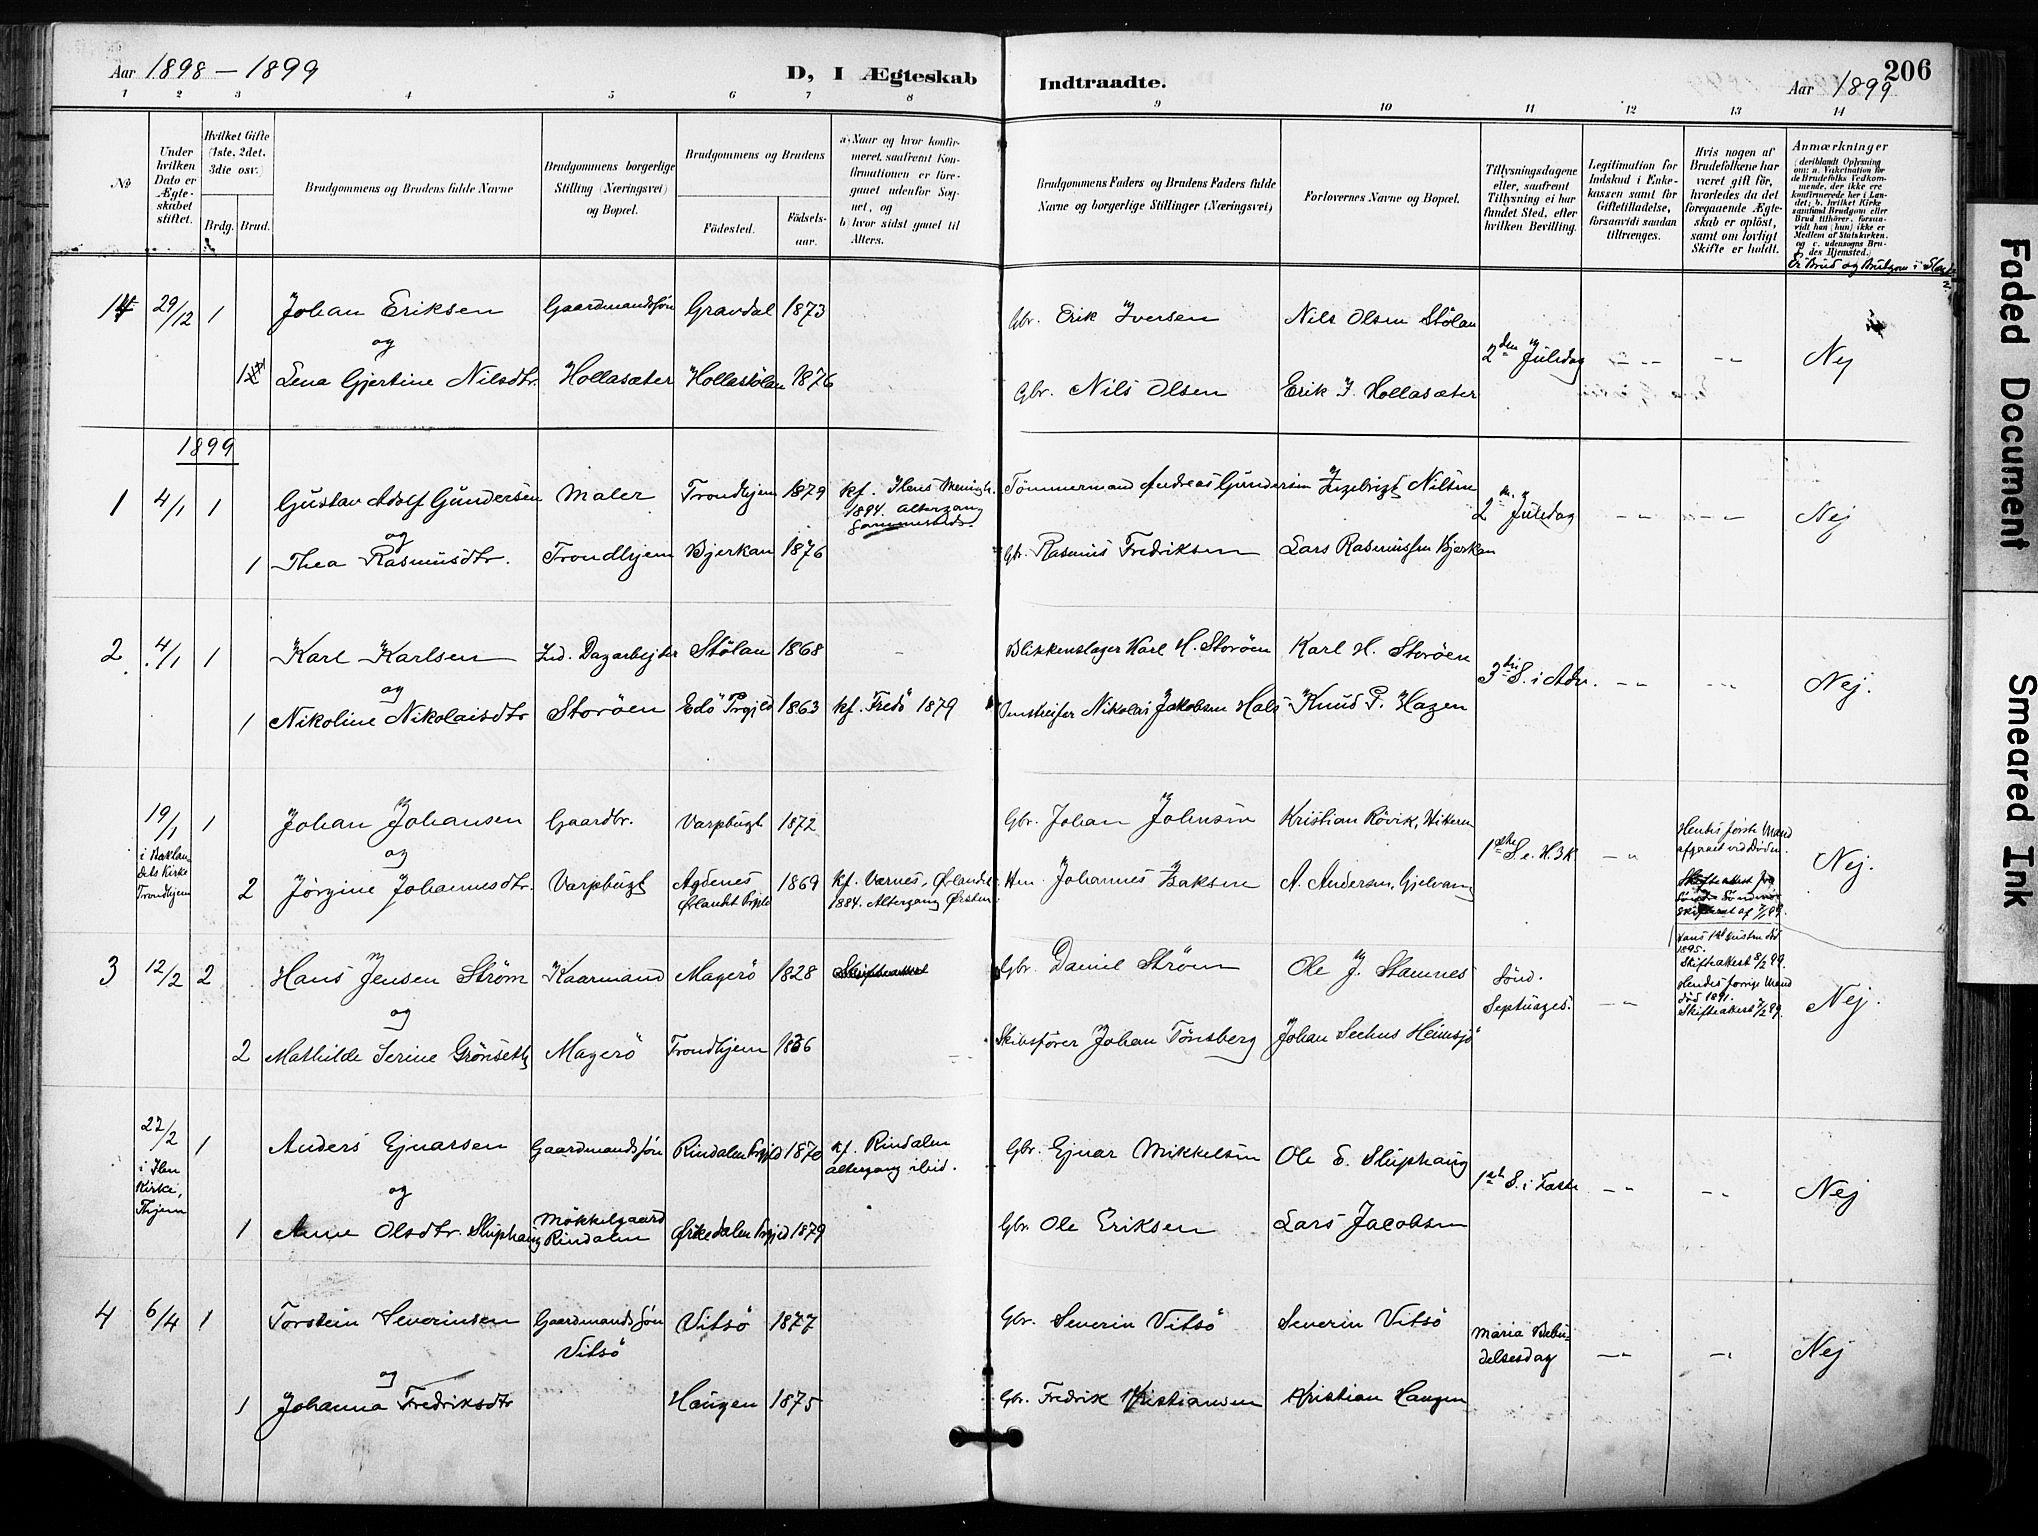 Aar 1898 – 1899
D, I Ægteskab
Indtraadte.
206
Aar 1899
1 2 3 4 5 6 7 8 9 10 11 12 13 14
№
Under hvilken Dato er Ægteskabet stiftet.
Hvilket Gifte (1ste, 2det, 3die osv.)
Brdg. Brud.
Brudgommens og Brudens fulde Navne
Brudgommens borgerlige Stilling (Næringsvei) og Bopæl.
Brudgommens og Brudens
Fødested.
Fødselsaar.
a) Naar og hvor konfirmeret, saafremt Konfirmationen er foregaaet udenfor Sognet, og
b) hvor sidst gaaet til Alters.
Brudgommens Faders og Brudens Faders fulde Navne og borgerlige Stillinger (Næringsvei)
Forlovernes Navne og Bopæl.
Tillysningsdagene eller, saafremt Tillysning ei har fundet Sted, efter hvilken Bevilling.
Legitimation for Indskud i Enkekassen samt for Giftetilladelse, forsaavidt saadan tiltrænges.
Hvis nogen af Brudefolkene har været gift før, hvorledes da det foregaaende Ægteskab er opløst, samt om lovligt Skifte er holdt.
Anmærkninger (deriblandt Oplysning om: a. Vakcination for de Brudefolks Vedkommende, der ikke ere konfirmerede her i Landet; b. hvilket Kirkesamfund Brudgom eller Brud tilhører, forsaavidt han (hun) ikke er Medlem af Statskirken, og c. udensogns Brudes Hjemsted.)
Er Brud og Brudgom i Slægt
14 29/12 1 Johan Eriksen Gaardmandssøn Gravdal 1873 Gbr. Erik Iversen Nils Olsen Stølan
og
2den Juledag Nej
1 Lena Gjertine Nilsdtr. Hollasæter Hollastølan 1876 Gbr. Nils Olsen Erik I. Hollasæter
1899
1 4/1 1 Gustav Adolf Gundersen Maler Trondhjem 1879 Kf. Ilens Menigh. 1894. Altergang sammesteds. Tømmermand Andreas Gundersen Ingebrigt Nilsen
og
2den Juledag Nej
1 Thea Rasmusdtr. Trondhjem Bjerkan 1876 Gbr. Rasmus Fredriksen Lars Rasmussen Bjerkan
2 4/1 1 Karl Karlsen Ind. Dagarbejder Stølan 1868 – Blikkenslager Karl H. Storøen Karl H. Storøen
og
3die S. i Adv. Nej.
1 Nikoline Nikolaisdtr Storøen Edø Prgjld 1863 Kf. Fredø 1879 Nikolai Jakobsen Hals Knud P. Hagen
19/1 1 Johan Johansen Gaardbr. Varpbugt 1872 Gbr. Johan Johnsen Kristian Røvik, Hitteren
i Baklandets Kirke Trondhjem
og
1ste S. e. H. 3 K. Nej.
Hendes første Mand afgaaet ved Døden.
2 Jørgine Johannesdtr. Varpbugt Agdenes Ørlandet Prgjld 1869 Kf. Værnes, Ørlandet 1884. Altergang Johannes Isaksen A. Andersen, Gjelvang
3 12/2 2 Hans Jensen Strøm Kaarmand Magerø 1828 Skifteattest Gbr. Daniel Strøm Ole J. Stamnes
og
Sønd. Septuages.
Hans 1st hustru død 1895. Skifteattest 8/2 99.
Hendes forrige Mand død 1891. Skifteattest 9/2 99.
Nej.
2 Mathilde Serine Grønseth Magerø Trondhjem 1836 Skibsfører Johan Tønsberg Johan Seehus Heimsjø
22/2 1 Anders Ejnarsen Gaardmandssøn Rindalen Prgjld 1870 Kf. Rindalen altergang ibid. Gbr. Ejnar Mikkelsen Ole E. Sluphaug
i Ilen Kirke, Thjem
og
1ste S. i Faste Nej
1 Anne Olsdtr. Sluphaug Møkkelgaard Rindalen Ørkedalen Prgjld 1879 Gbr. Ole Eriksen Lars Jacobsen
4 6/4 1 Torstein Severinsen Gaardmandssøn Vitsø Vitsø 1877 Gbr. Severin Vitsø Severin Vitsø
og
Maria Bebudelsesdag Nej
1 Johanna Fredriksdtr Haugen 1875 Gbr. Fredrik Kristiansen Kristian Haugen
Faded Document
Smeared Ink